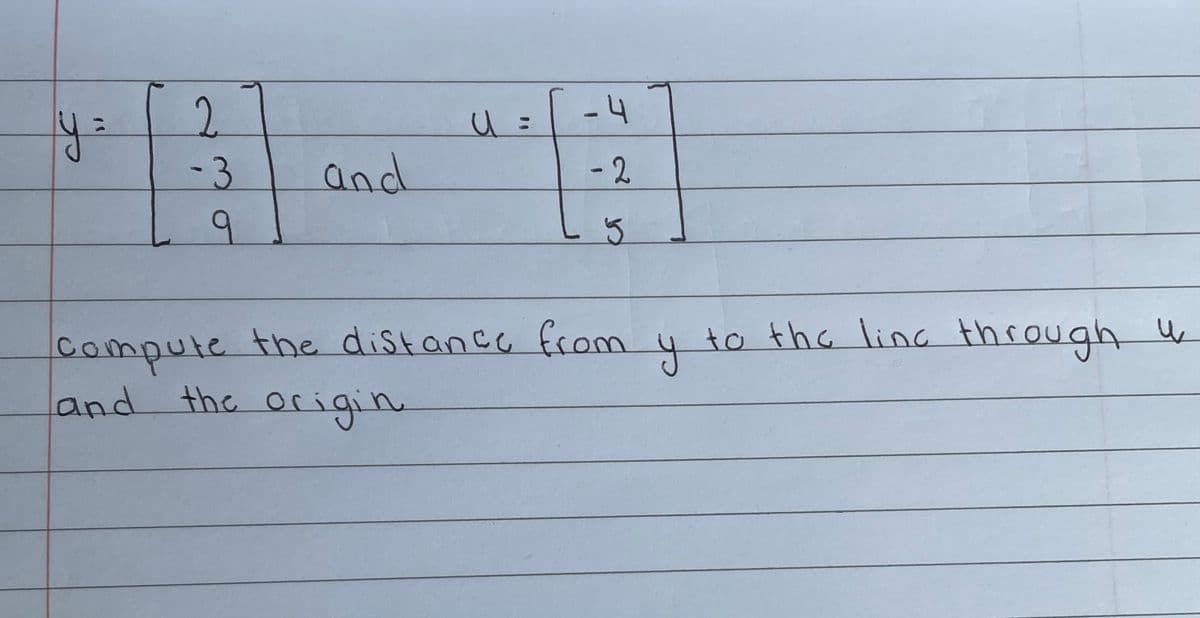 y = [ 2 -3 9 ] and u = [ -4 -2 5 ]
compute the distance from y to the line through u
and the origin